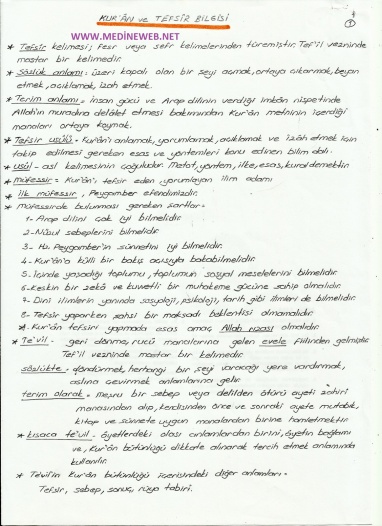 KUR'ÂN ve TEFSİR BİLGİSİ
1
WWW.MEDİNEWEB.NET
* Tefsir kelimesi; fesr veya sefr kelimelerinden türemiştir. Tef'il vezninde
mastar bir kelimedir.
* Sözlük anlamı: üzeri kapalı olan bir şeyi açmak, ortaya çıkarmak, beyan
etmek, açıklamak, izah etmek.
* Terim anlamı = İnsan gücü ve Arap dilinin verdiği imkân nispetinde
Allah'ın muradına delâlet etmesi bakımından Kur'an metninin içerdiği
manaları ortaya koymak.
* Tefsir usûlü = Kur'ân'ı anlamak, yorumlamak, açıklamak ve izâh etmek için
takip edilmesi gereken esas ve yöntemleri konu edinen bilim dalı.
* usûl = asl kelimesinin çoğuludur. Metot, yöntem, ilke, esas, kural demektir.
* müfessir = Kur'ân'ı tefsir eden, yorumlayan ilim adamı
* ilk müfessir, Peygamber efendimizdir.
* müfessirde bulunması gereken şartlar =
1- Arap dilini çok iyi bilmelidir.
2- Nüzul sebeplerini bilmelidir.
3- Hz. Peygamber'in sünnetini iyi bilmelidir.
4- Kur'an'a külli bir bakış açısıyla bakabilmelidir.
5- İçinde yaşadığı toplumu, toplumun sosyal meselelerini bilmelidir.
6- Keskin bir zekâ ve kuvvetli bir muhakeme gücüne sahip olmalıdır.
7- Dini ilimlerin yanında sosyoloji, psikoloji, tarih gibi ilimleri de bilmelidir.
8- Tefsir yaparken şahsi bir maksadı beklentisi olmamalıdır.
* Kur'an tefsiri yapmada esas amaç Allah rızası olmalıdır.
* Te'vil = geri dönme, rücû manalarına gelen evele fiilinden gelmiştir.
Tef'il vezninde mastar bir kelimedir.
sözlükte = döndürmek, herhangi bir şeyi varacağı yere vardırmak,
aslına çevirmek anlamlarına gelir.
terim olarak = Meşru bir sebep veya delilden ötürü ayeti zahiri
manasından alıp, kendisinden önce ve sonraki ayete mutabık,
kitap ve sünnete uygun manalardan birine hamletmektir.
* kısaca te'vil = âyetlerdeki olası anlamlardan birini, âyetin bağlamı
ve, Kur'an bütünlüğü dikkate alınarak tercih etmek anlamında
kullanılır.
* Te'vil'in Kur'ân bütünlüğü içerisindeki diğer anlamları =
Tefsir, sebep, sonuç, rüya tabiri.